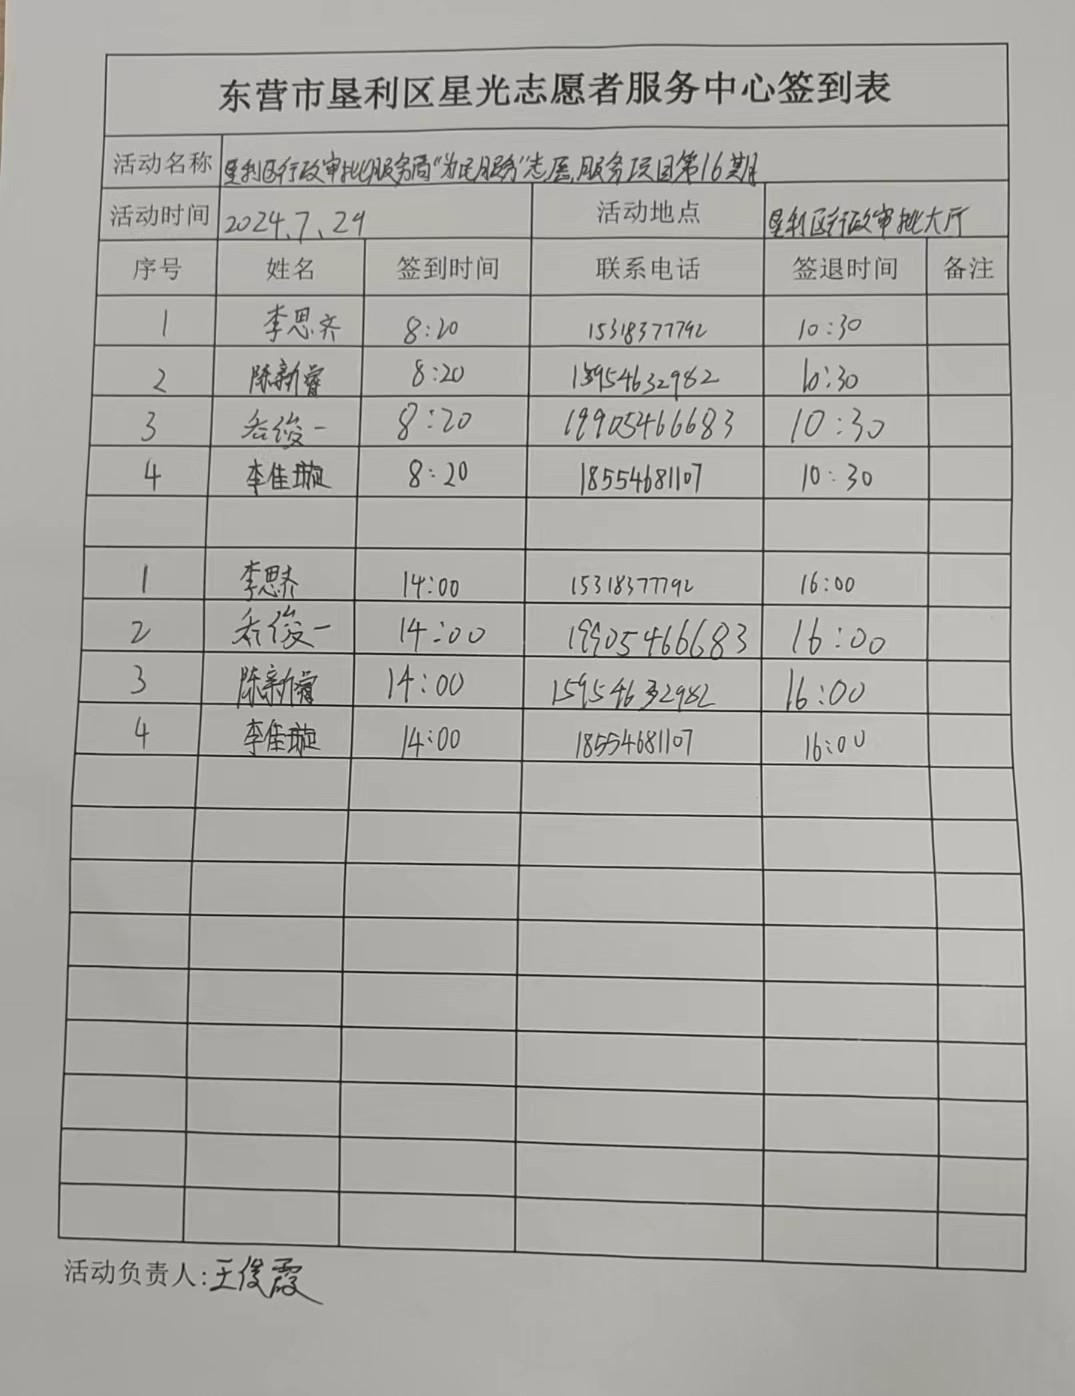 东营市垦利区星光志愿者服务中心签到表
活动名称 垦利区行政审批服务局“为民服务”志愿服务项目第16期
活动时间 2024.7.29 活动地点 垦利区行政审批大厅
序号 姓名 签到时间 联系电话 签退时间 备注
1 李思齐 8:20 15318377792 10:30
2 陈新睿 8:20 15954632982 10:30
3 俊一 8:20 19905466683 10:30
4 李佳璇 8:20 18554681107 10:30
1 李思齐 14:00 15318377792 16:00
2 俊一 14:00 19905466683 16:00
3 陈新睿 14:00 15954632982 16:00
4 李佳璇 14:00 18554681107 16:00
活动负责人:王俊霞